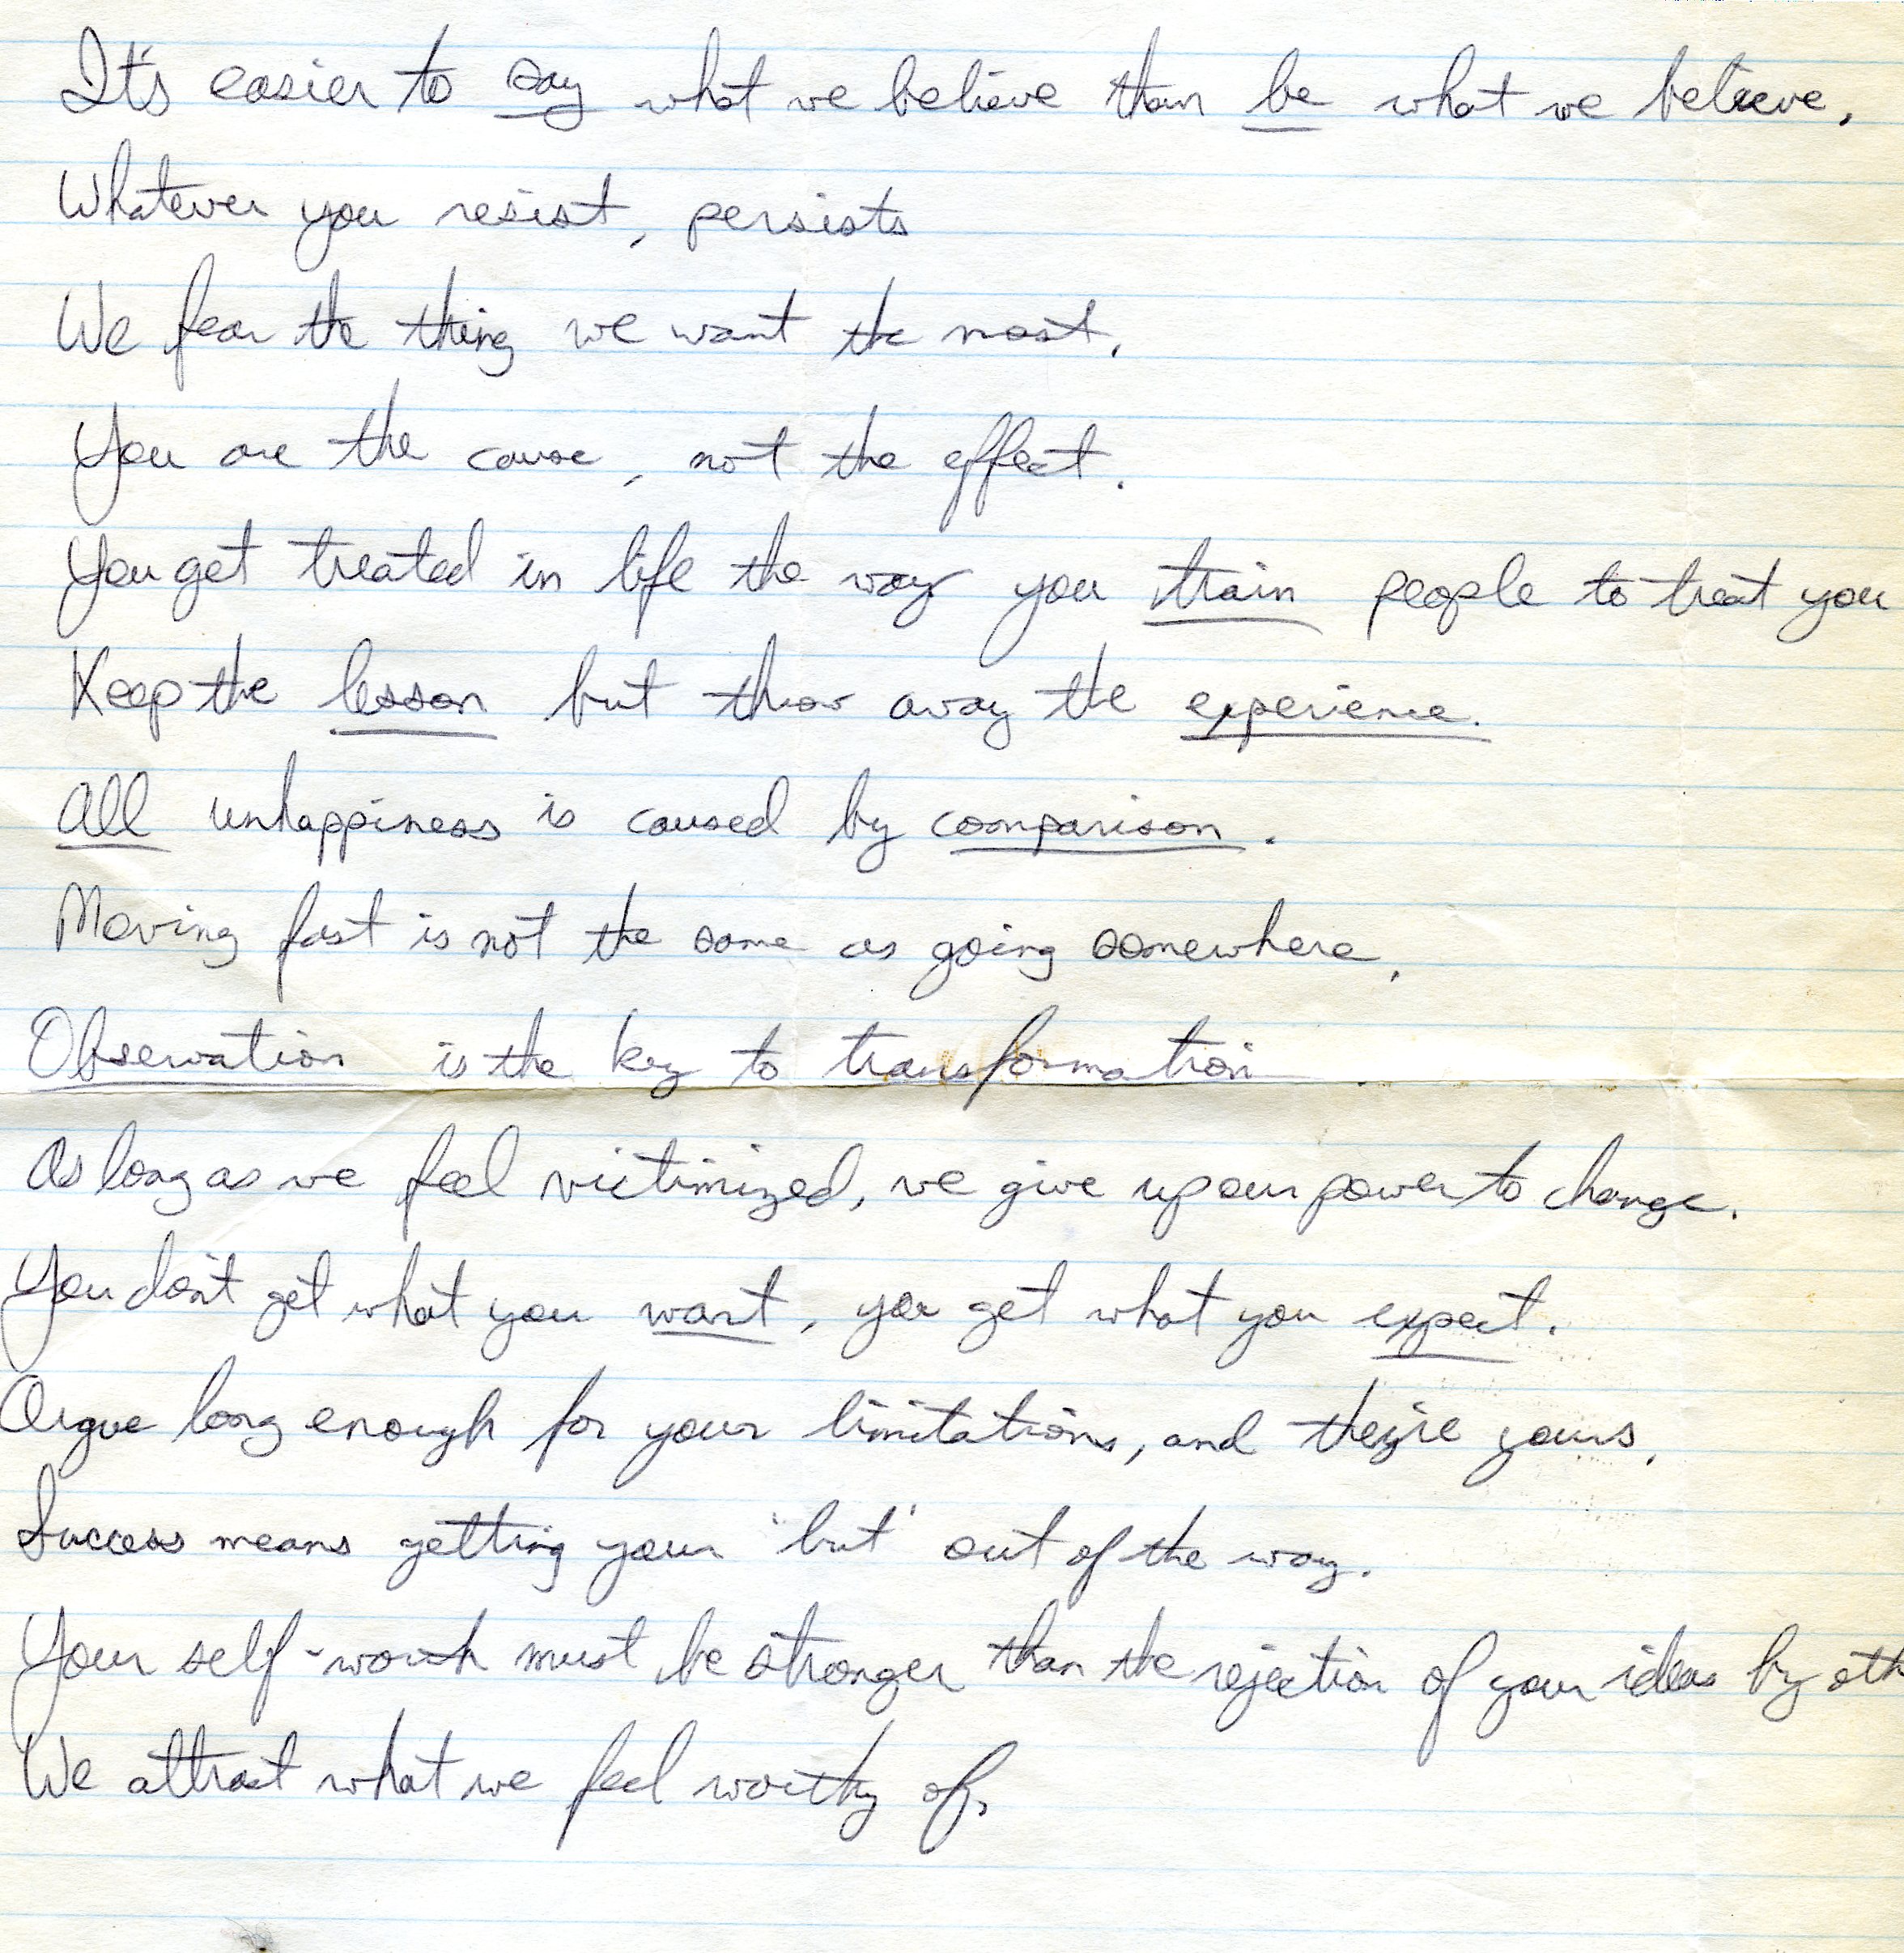 It's easier to say what we believe than be what we believe.
Whatever you resist, persists
We fear the thing we want the most.
You are the cause, not the effect.
You get treated in life the way you train people to treat you
Keep the lesson but throw away the experience.
All unhappiness is caused by comparison.
Moving fast is not the same as going somewhere.
Observation is the key to transformation.
As long as we feel victimized, we give up our power to change.
You don't get what you want, you get what you expect.
Argue long enough for your limitations, and they're yours.
Success means getting your 'but' out of the way.
Your self-worth must be stronger than the rejection of your ideas by oth
We attract what we feel worthy of.